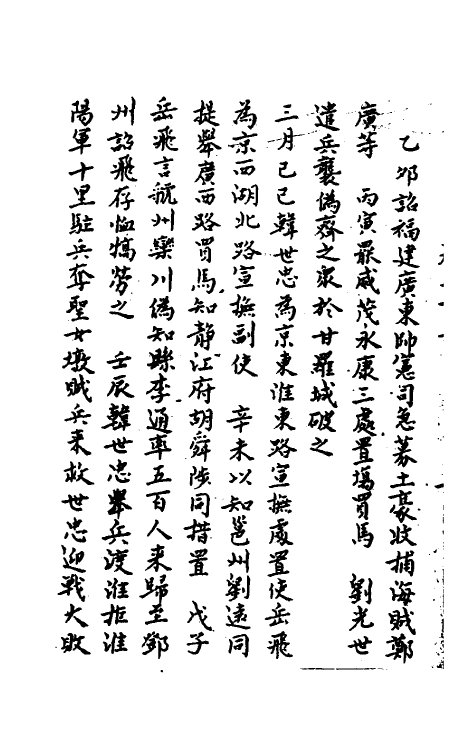 乙卯詔福建廣東帥憲司急募土豪收捕海賊鄭
廣等　丙寅罷威茂永康三處置場買馬　劉光世
遣兵襲偽齊之眾於甘羅城破之
三月己巳韓世忠為京東淮東路宣撫處置使岳飛
為京西湖北路宣撫副使　辛未以知邕州劉遠同
提舉廣西路買馬知靜江府胡舜陟同措置　戊子
岳飛言虢州欒川偽知縣李通率五百人來歸至鄧
州詔飛存恤犒勞之　壬辰韓世忠舉兵渡淮拒淮
陽軍十里駐兵奪聖女墩賊兵來救世忠迎戰大敗